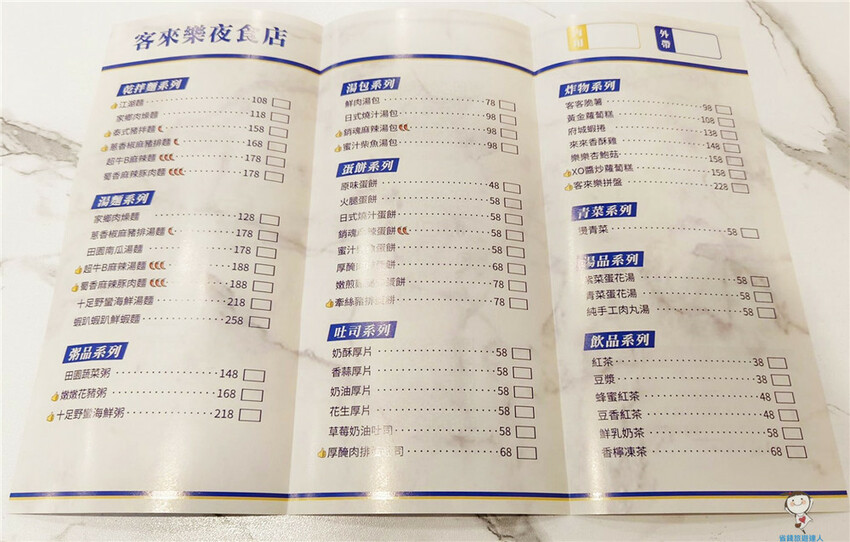 客來樂夜食店
乾拌麵系列
江湖麵 108
家鄉肉燥麵 118
泰式豬拌麵 158
蔥香椒麻豬排麵 168
超牛B麻辣麵 178
蜀香麻辣豚肉麵 178
湯麵系列
家鄉肉燥麵 128
蔥香椒麻豬排湯麵 178
田園南瓜湯麵 178
超牛B麻辣湯麵 188
蜀香麻辣豚肉麵 188
十足野蠻海鮮湯麵 218
蝦趴蝦趴鮮蝦麵 258
粥品系列
田園蔬菜粥 148
嫩嫩花豬粥 168
十足野蠻海鮮粥 218
湯包系列
鮮肉湯包 78
日式燒汁湯包 98
銷魂麻辣湯包 98
蜜汁柴魚湯包 98
蛋餅系列
原味蛋餅 48
火腿蛋餅 58
日式燒汁蛋餅 58
銷魂麻辣蛋餅 58
蜜汁 蛋餅 58
厚醃 蛋餅 68
嫩煎 蛋餅 78
牽絲豬排蛋餅 78
吐司系列
奶酥厚片 58
香蒜厚片 58
奶油厚片 58
花生厚片 58
草莓奶油吐司 58
厚醃肉排 司 68
外帶
炸物系列
客客脆薯 98
黃金蘿蔔糕 108
府城蝦捲 138
來來香酥雞 148
樂樂杏鮑菇 158
XO醬炒蘿蔔糕 158
客來樂拼盤 228
青菜系列
燙青菜 58
湯品系列
紫菜蛋花湯 58
青菜蛋花湯 58
純手工肉丸湯 58
飲品系列
紅茶 38
豆漿 38
蜂蜜紅茶 48
豆香紅茶 48
鮮乳奶茶 58
香檸凍茶 68
省錢旅遊達人